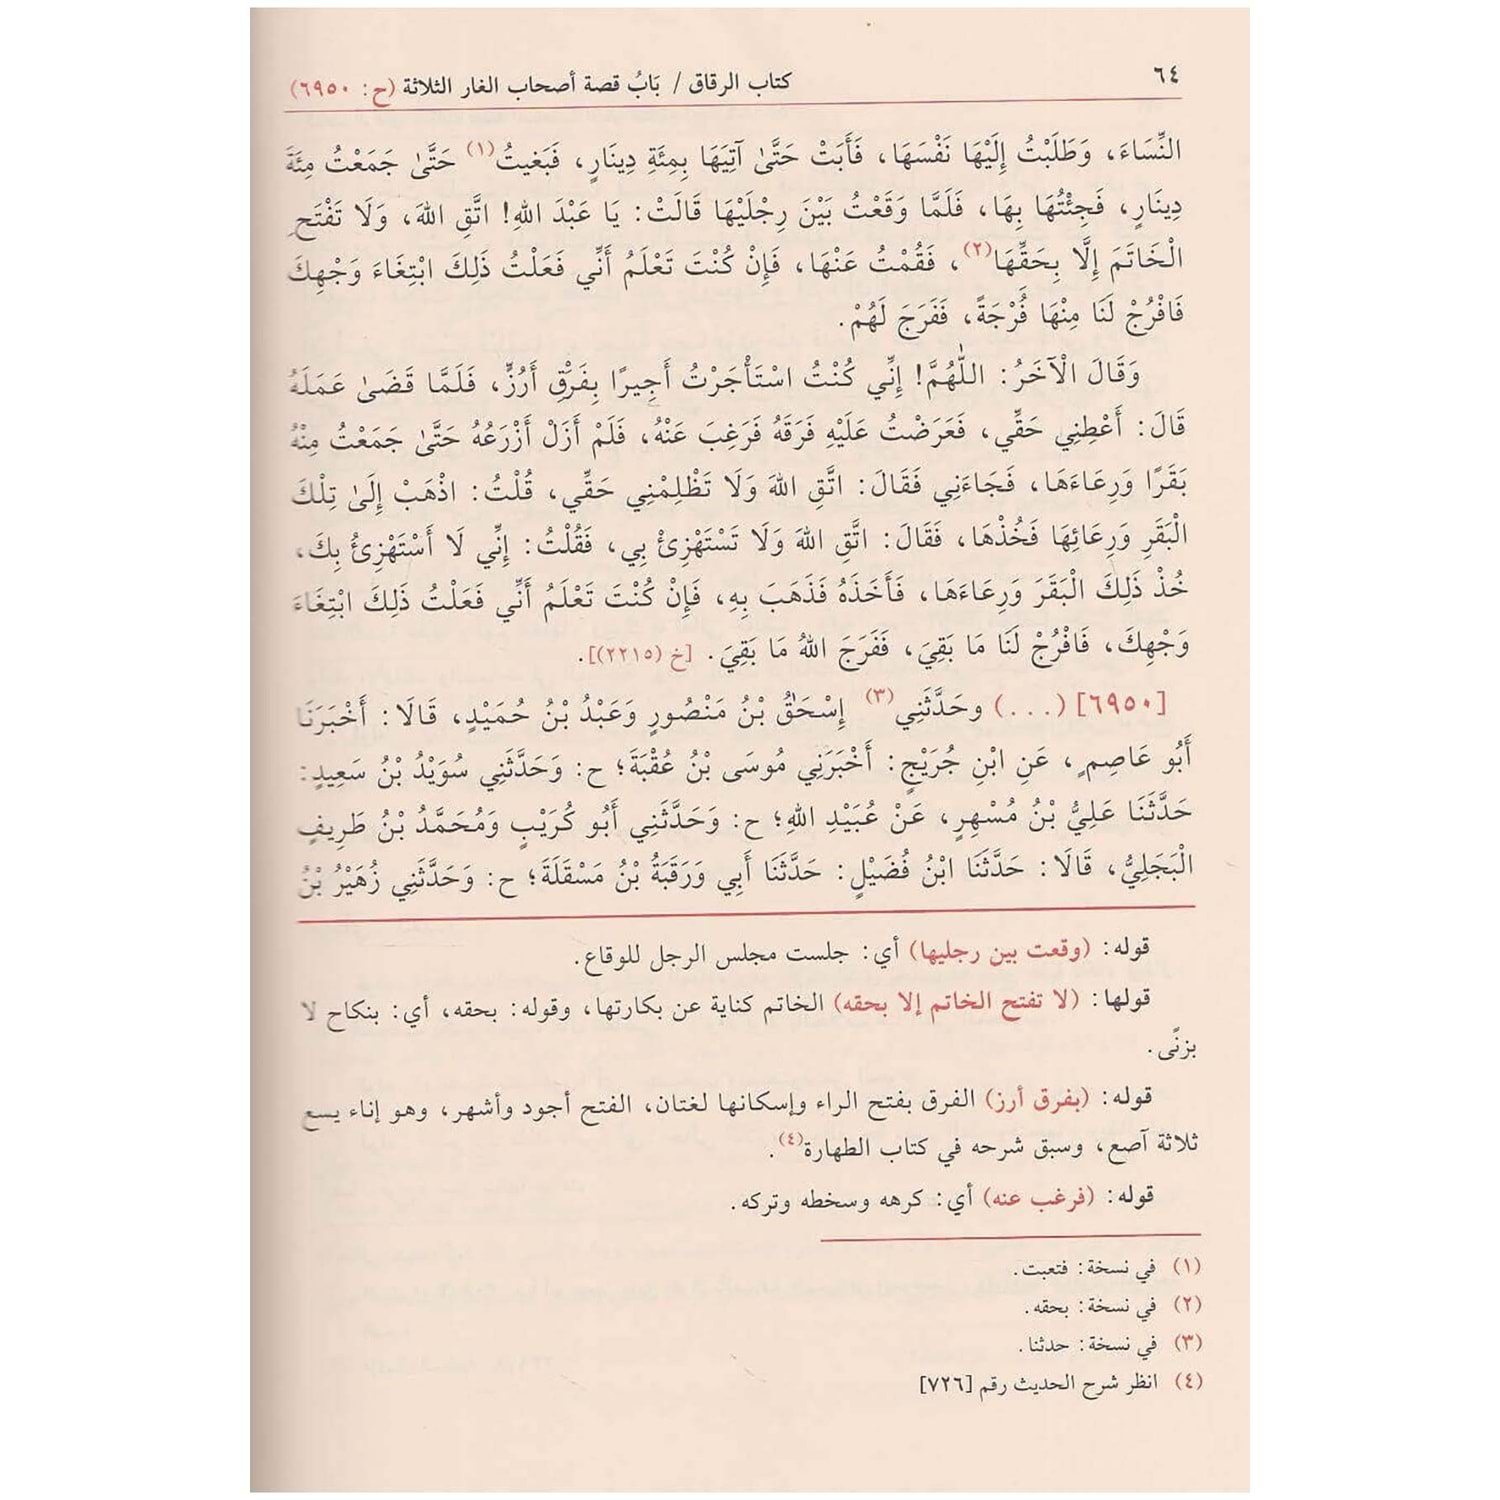 ٦٤
كتاب الرقاق / بَابُ قصة أصحاب الغار الثلاثة (ح: ٦٩٥٠)
النِّسَاءَ، وَطَلَبْتُ إِلَيْهَا نَفْسَهَا، فَأَبَتْ حَتَّىٰ آتِيَهَا بِمِئَةِ دِينَارٍ، فَبَغيتُ(١) حَتَّىٰ جَمَعْتُ مِئَةَ
دِينَارٍ، فَجِئْتُهَا بِهَا، فَلَمَّا وَقَعْتُ بَيْنَ رِجْلَيْهَا قَالَتْ: يَا عَبْدَ اللهِ! اتَّقِ اللهَ، وَلَا تَفْتَحِ
الْخَاتَمَ إِلَّا بِحَقِّهَا(٢)، فَقُمْتُ عَنْهَا، فَإِنْ كُنْتَ تَعْلَمُ أَنِّي فَعَلْتُ ذَلِكَ ابْتِغَاءَ وَجْهِكَ
فَافْرُجْ لَنَا مِنْهَا فُرْجَةً، فَفَرَجَ لَهُمْ.
وَقَالَ الْآخَرُ: اللَّهُمَّ! إِنِّي كُنْتُ اسْتَأْجَرْتُ أَجِيرًا بِفَرَقِ أَرُزٍّ، فَلَمَّا قَضَىٰ عَمَلَهُ
قَالَ: أَعْطِنِي حَقِّي، فَعَرَضْتُ عَلَيْهِ فَرَقَهُ فَرَغِبَ عَنْهُ، فَلَمْ أَزَلْ أَزْرَعُهُ حَتَّىٰ جَمَعْتُ مِنْهُ
بَقَرًا وَرِعَاءَهَا، فَجَاءَنِي فَقَالَ: اتَّقِ اللهَ وَلَا تَظْلِمْنِي حَقِّي، قُلْتُ: اذْهَبْ إِلَىٰ تِلْكَ
الْبَقَرِ وَرِعَائِهَا فَخُذْهَا، فَقَالَ: اتَّقِ اللهَ وَلَا تَسْتَهْزِئْ بِي، فَقُلْتُ: إِنِّي لَا أَسْتَهْزِئُ بِكَ،
خُذْ ذَلِكَ الْبَقَرَ وَرِعَاءَهَا، فَأَخَذَهُ فَذَهَبَ بِهِ، فَإِنْ كُنْتَ تَعْلَمُ أَنِّي فَعَلْتُ ذَلِكَ ابْتِغَاءَ
وَجْهِكَ، فَافْرُجْ لَنَا مَا بَقِيَ، فَفَرَجَ اللهُ مَا بَقِيَ. [خ (٢٢١٥)].
[٦٩٥٠] (...) وحَدَّثَنِي(٣) إِسْحَقُ بْنُ مَنْصُورٍ وَعَبْدُ بْنُ حُمَيْدٍ، قَالَا: أَخْبَرَنَا
أَبُو عَاصِمٍ، عَنِ ابْنِ جُرَيْجٍ: أَخْبَرَنِي مُوسَى بْنُ عُقْبَةَ؛ ح: وَحَدَّثَنِي سُوَيْدُ بْنُ سَعِيدٍ:
حَدَّثَنَا عَلِيُّ بْنُ مُسْهِرٍ، عَنْ عُبَيْدِ اللهِ؛ ح: وَحَدَّثَنِي أَبُو كُرَيْبٍ وَمُحَمَّدُ بْنُ طَرِيفٍ
الْبَجَلِيُّ، قَالَا: حَدَّثَنَا ابْنُ فُضَيْلٍ: حَدَّثَنَا أَبِي وَرَقَبَةُ بْنُ مَسْقَلَةَ؛ ح: وَحَدَّثَنِي زُهَيْرُ بْنُ
قوله: (وقعت بين رجليها) أي: جلست مجلس الرجل للوقاع.
قولها: (لا تفتح الخاتم إلا بحقه) الخاتم كناية عن بكارتها، وقوله: بحقه، أي: بنكاح لا
بزنًى.
قوله: (بفرق أرز) الفرق بفتح الراء وإسكانها لغتان، الفتح أجود وأشهر، وهو إناء يسع
ثلاثة آصع، وسبق شرحه في كتاب الطهارة(٤).
قوله: (فرغب عنه) أي: كرهه وسخطه وتركه.
(١) في نسخة: فتعبت.
(٢) في نسخة: بحقه.
(٣) في نسخة: حدثنا.
(٤) انظر شرح الحديث رقم [٧٢٦]